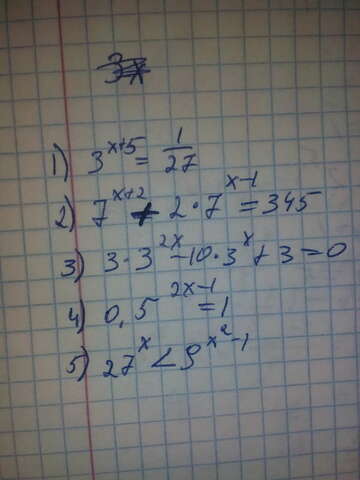 1) 3^{x+5} = 1/27
2) 7^{x+2} + 2·7^{x-1} = 345
3) 3·3^{2x} - 10·3^x + 3 = 0
4) 0,5^{2x-1} = 1
5) 27^x < 9^{x^2-1}